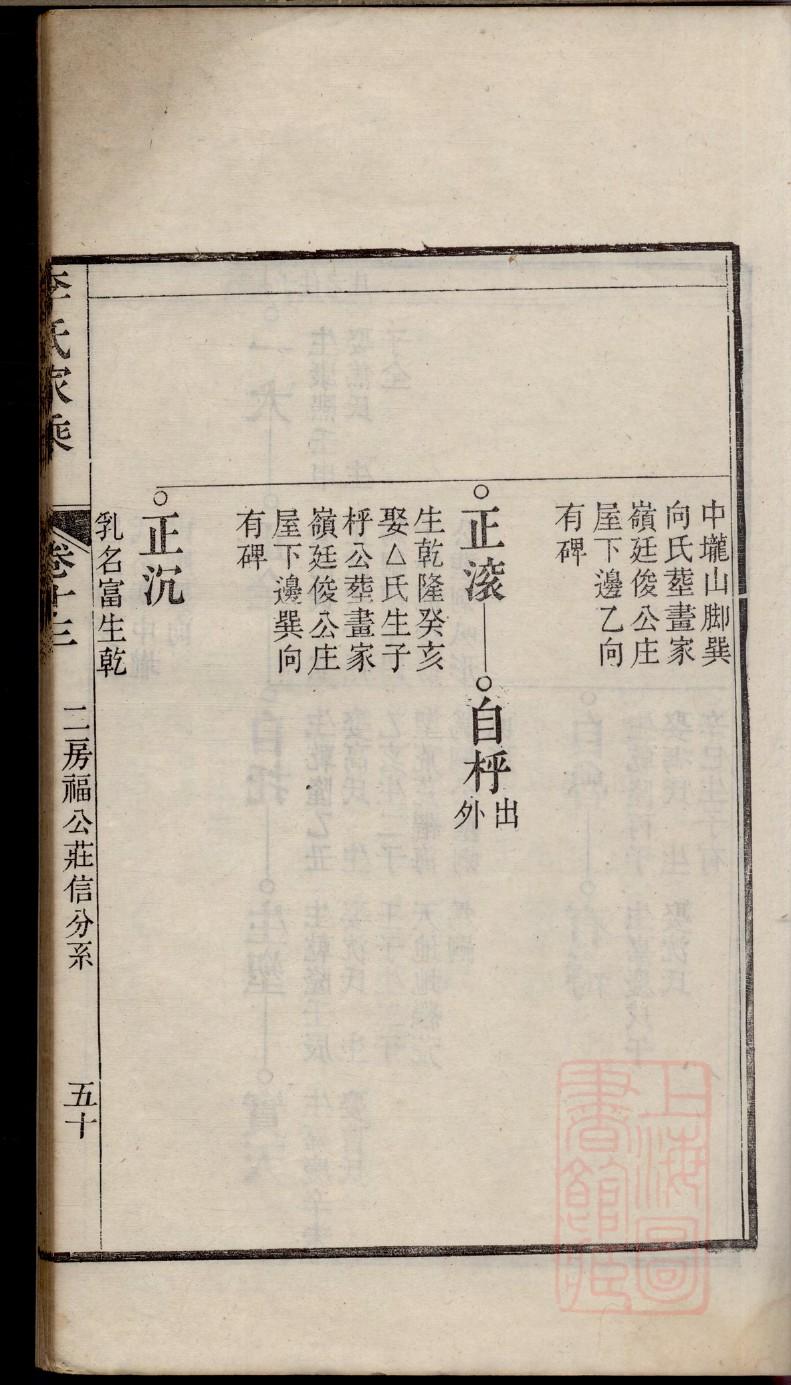 中壠山脚巽
向氏塟畫家
嶺廷俊公庄
屋下邊乙向
有碑
正滚
自枰
出
外
生乾隆癸亥
娶厶氏生子
枰公塟畫家
嶺廷俊公庄
屋下邊巽向
有碑
正沉
乳名富生乾
李氏家乘
卷十三
二房福公莊信分系
五十
上海圖
書館藏